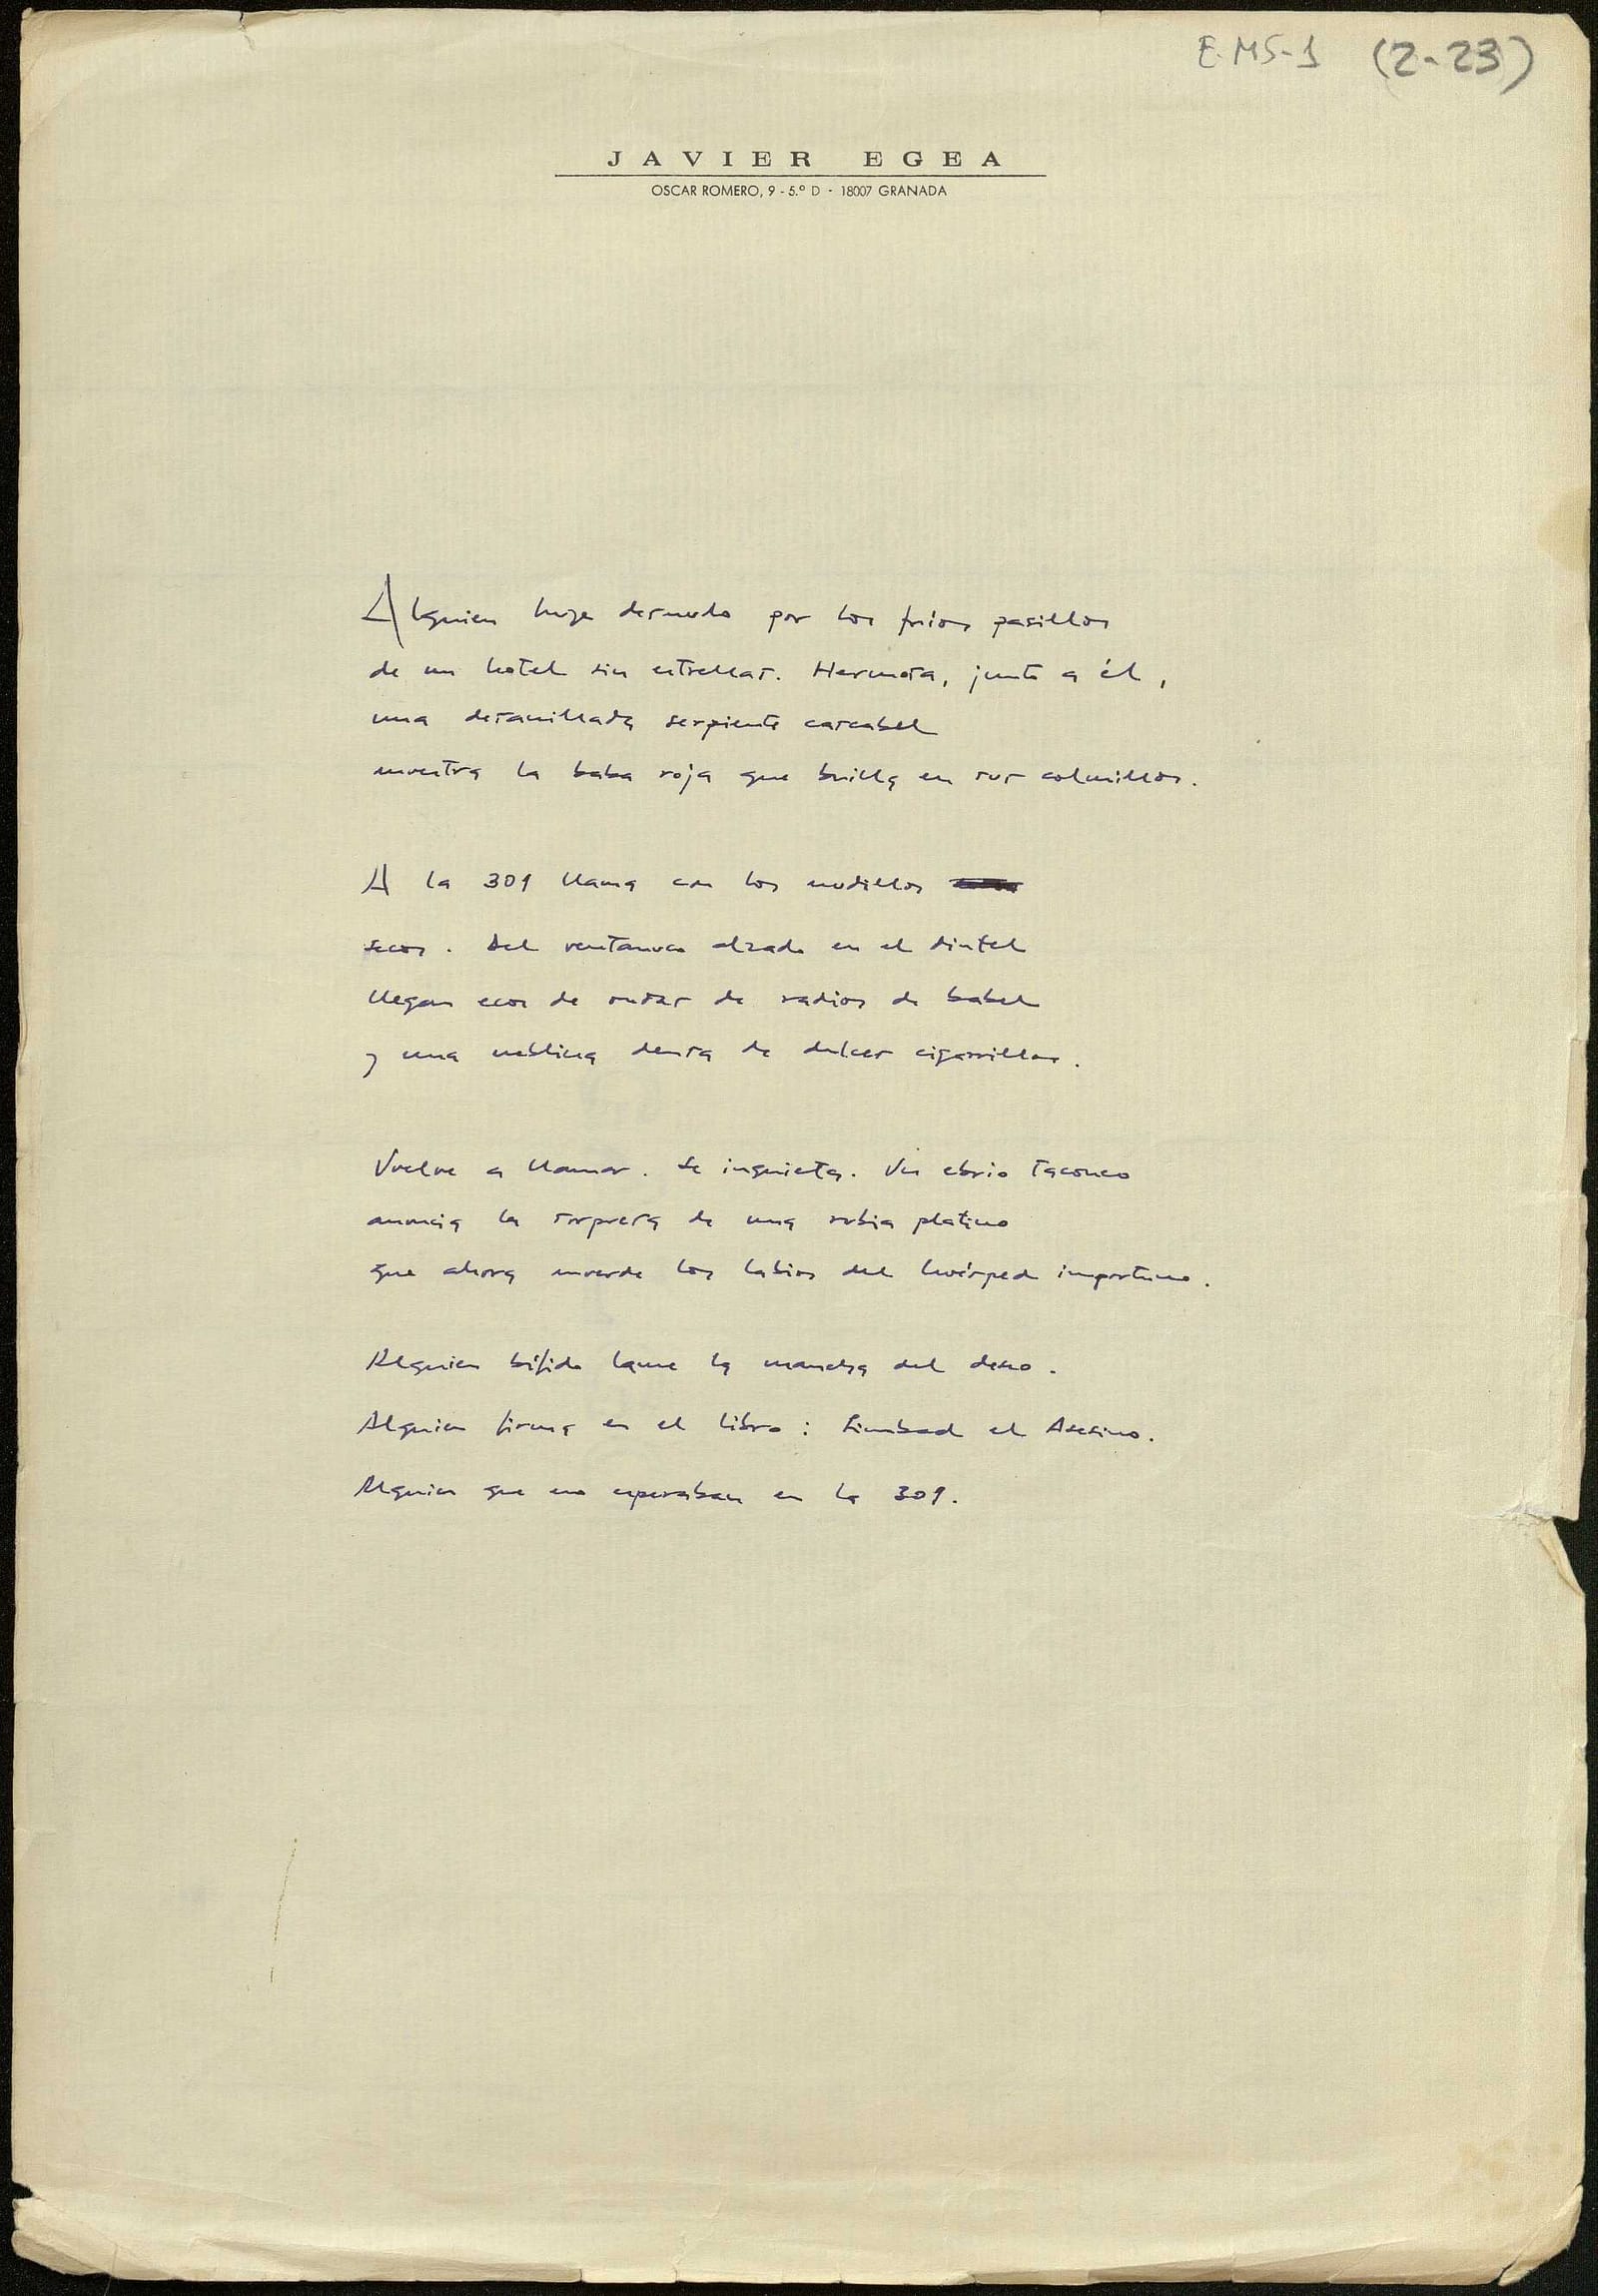 E-MS-1 (2-23)
JAVIER EGEA
OSCAR ROMERO, 9 - 5.º D - 18007 GRANADA
Alguien huye desnudo por los fríos pasillos
de un hotel sin estrellas. Hermosa, junto a él,
una desanillada serpiente cascabel
muestra la baba roja que brilla en sus colmillos.
A la 301 llama con los nudillos
secos. Del ventanuco alzado en el dintel
llegan ecos de ondas de radios de babel
y una neblina densa de dulces cigarrillos.
Vuelve a llamar. Se inquieta. Un ebrio taconeo
anuncia la sorpresa de una rubia platino
que ahora muerde los labios del huésped importuno.
Alguien bífido lame la mancha del deseo.
Alguien firma en el libro: Simbad el Asesino.
Alguien que no esperaban en la 301.